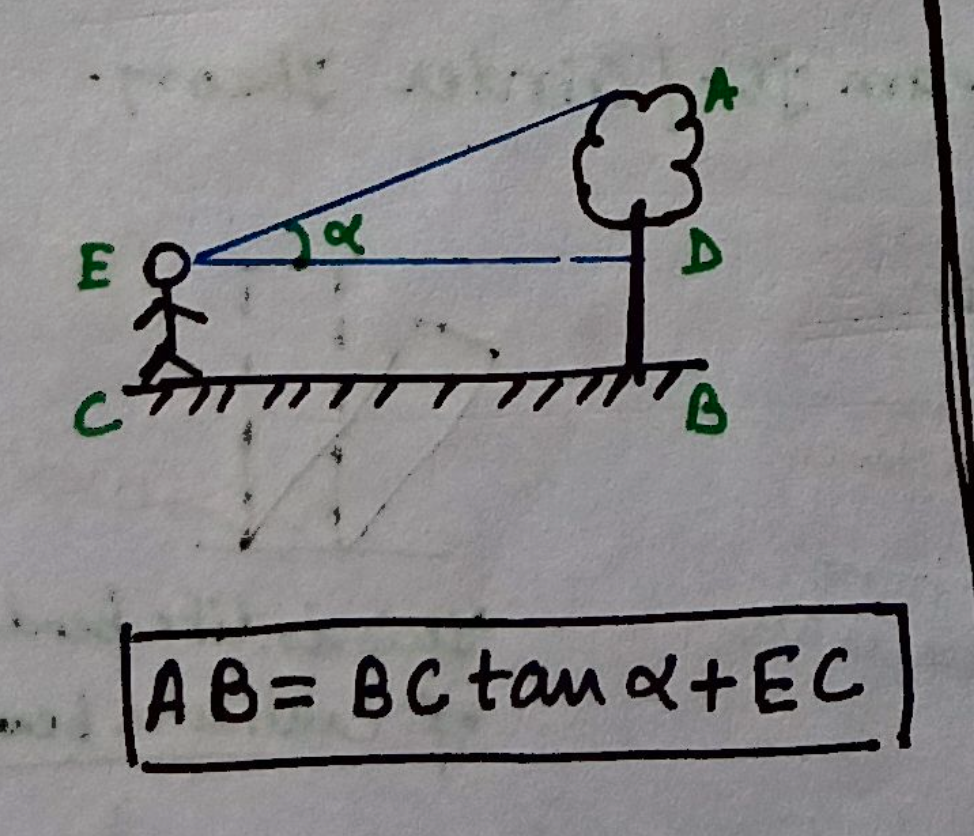 A
α
E
D
C
B
AB = BC tan α + EC